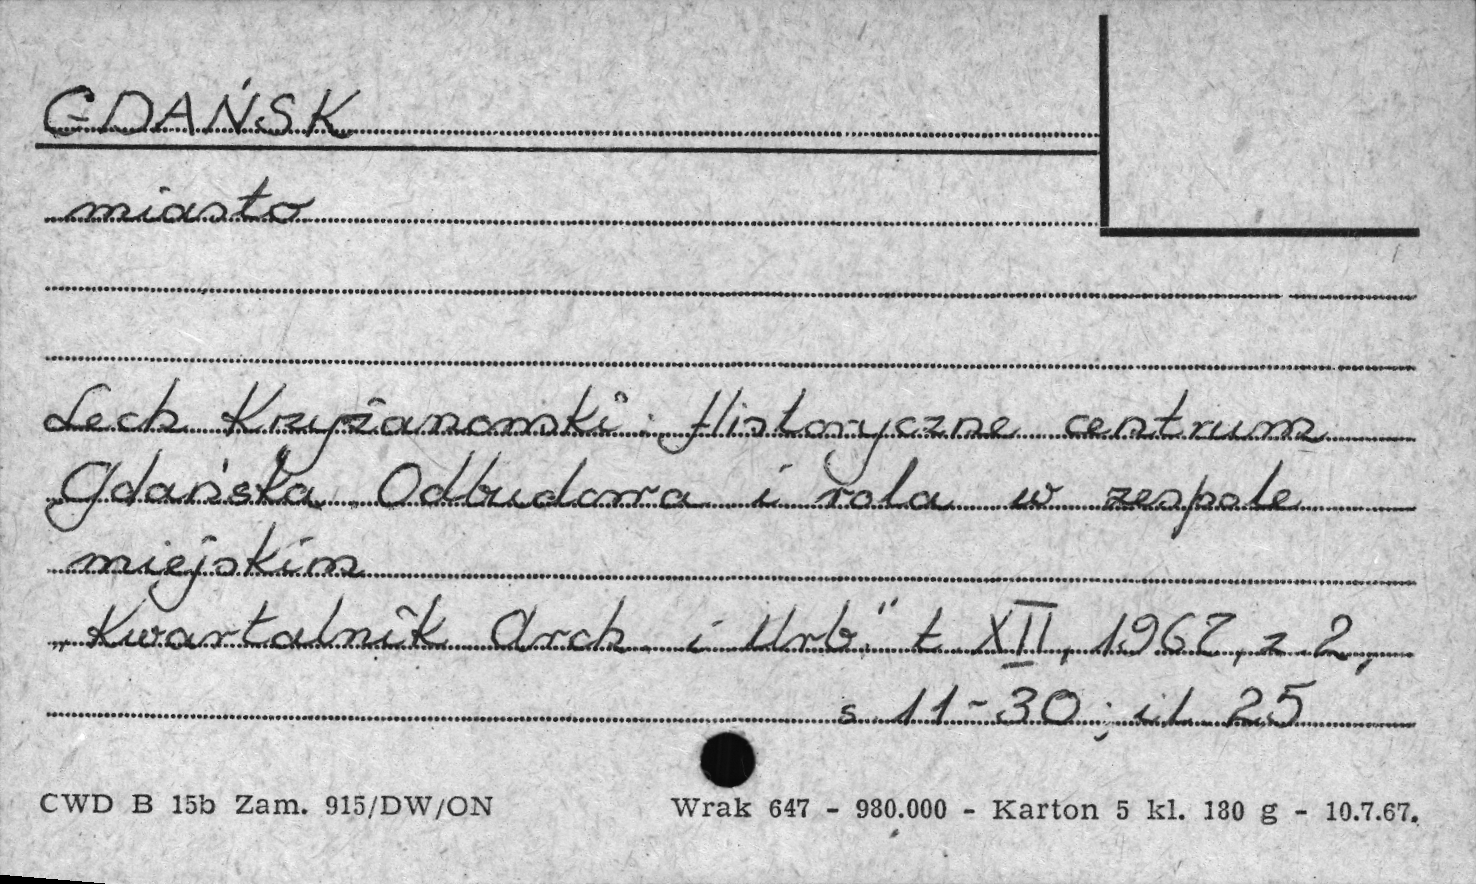 GDAŃSK
miasto
Lech Krzyżanowski: Historyczne centrum
Gdańska Odbudowa i rola w zespole
miejskim
„Kwartalnik Arch. i Urb." t XII, 1967, z 2,
s 11-30; il. 25
CWD B 15b Zam. 915/DW/ON
Wrak 647 - 980.000 - Karton 5 kl. 180 g - 10.7.67.